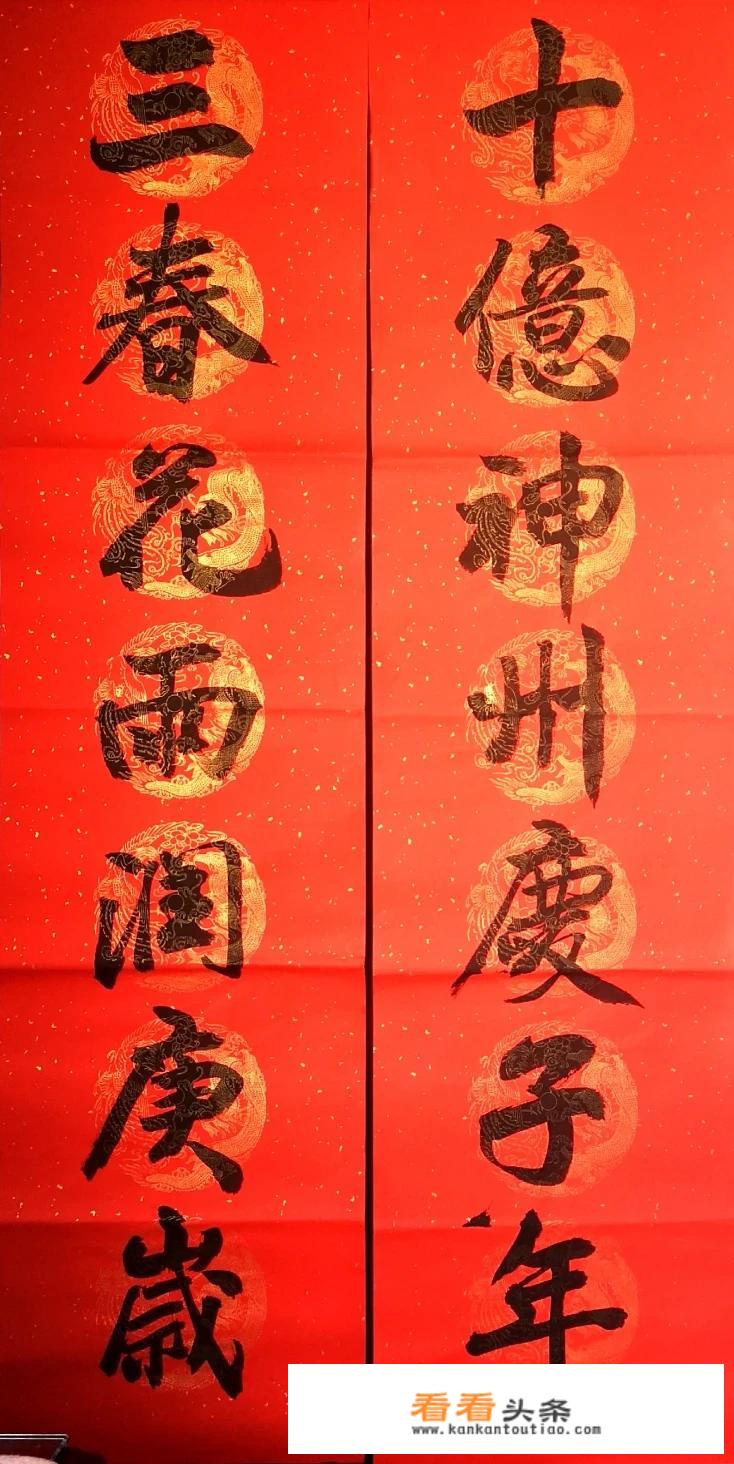 十億神州慶子年
三春花雨润庚歲
看看头条
www.kankantoutiao.com